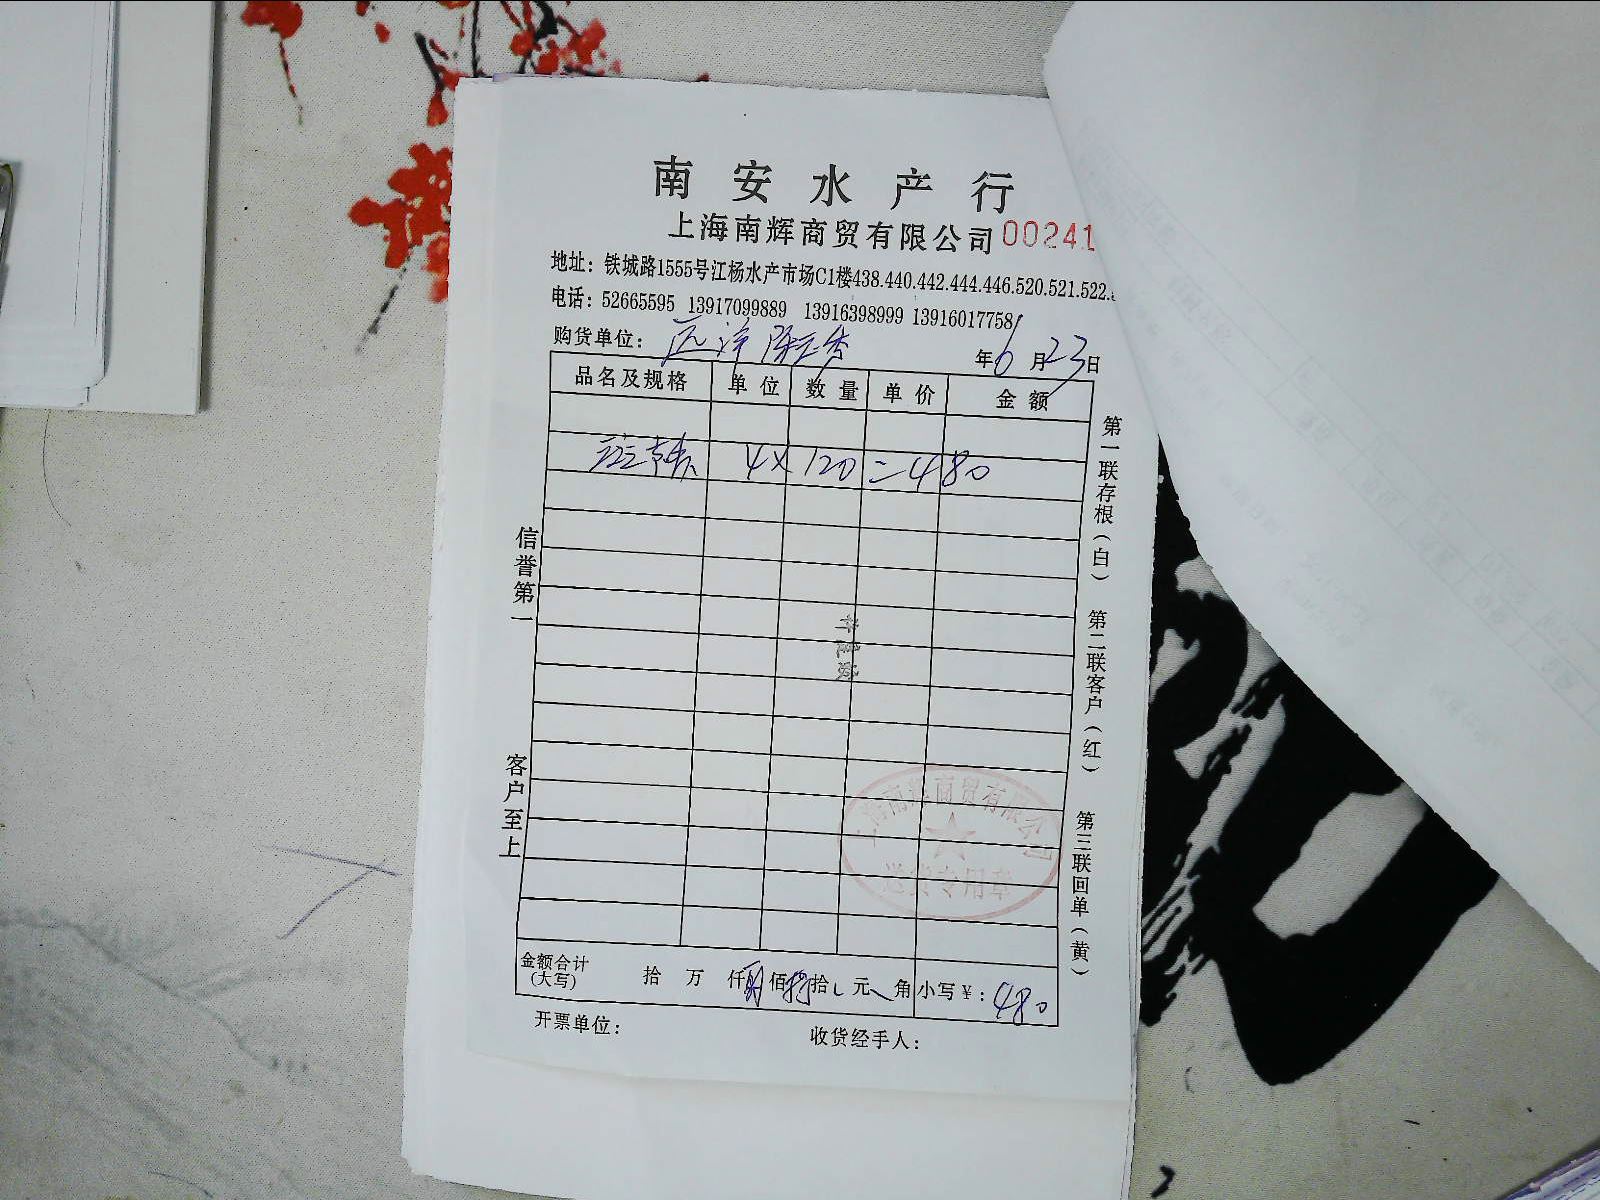 南安水产行
上海南辉商贸有限公司 00241
地址：铁城路1555号江杨水产市场C1楼438.440.442.444.446.520.521.522.
电话：52665595 13917099889 13916398999 13916017758
购货单位： 年6月23日
品名及规格 单位 数量 单价 金额
4×120=480
信誉第一
客户至上
第一联存根（白）
第二联客户（红）
第三联回单（黄）
上海南辉商贸有限公司
送货专用章
金额合计（大写） 拾 万 仟 肆 佰 捌 拾 元 角 小写￥：480
开票单位： 收货经手人：